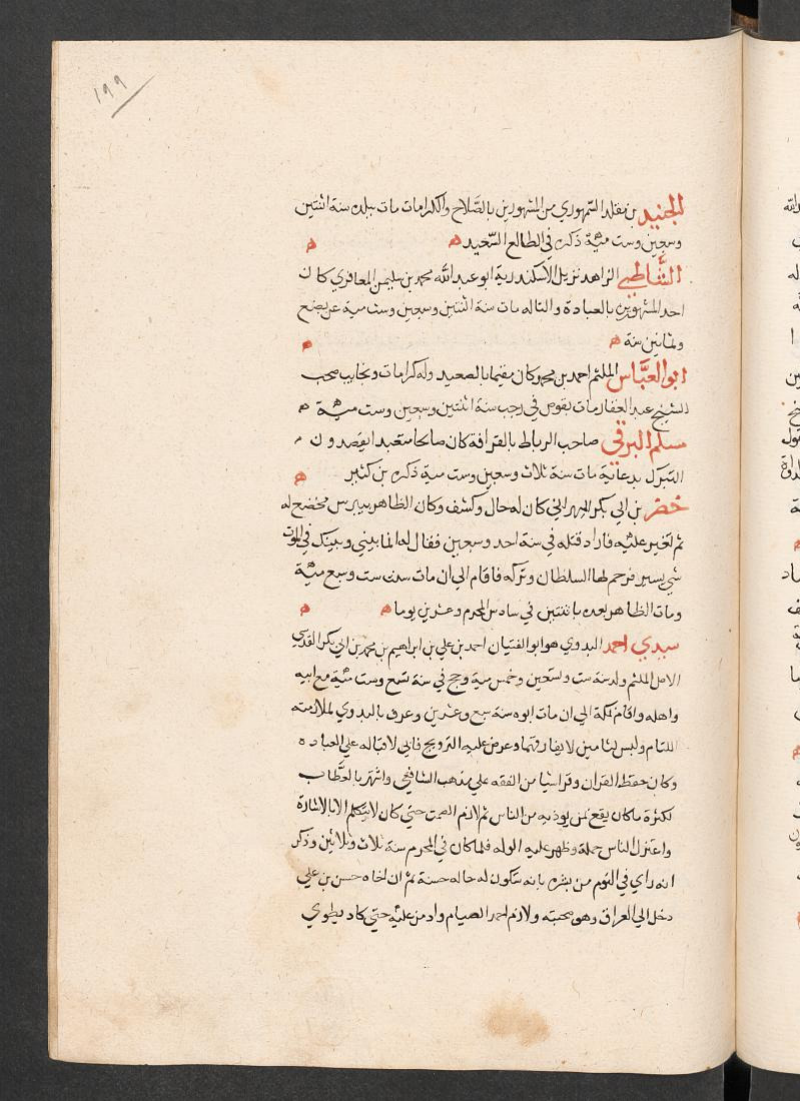 ١٩٩
الجنيد بن مقلد السمهوري من المشهورين بالصلاح والكرامات مات ببلده سنة اثنتين
وسبعين وست مئية ذكره في الطالع السعيد
الشاطبي الزاهد نزيل الاسكندرية ابو عبد الله محمد بن سليمن المعافري كان
احد المشهورين بالعبادة والتاله مات سنة اثنتين وسبعين وست مية عن بضع
وثمانين سنة
ابو العباس الملثم احمد بن محمد كان مقيما بالصعيد وله كرامات وعجايب صحب
الشيخ عبد الغفار مات بقوص في رجب سنة اثنتين وسبعين وست مئية
مسلم البرقي صاحب الرباط بالقرافة كان صالحا متعبدا يقصد و ن
التبرك بدعائه مات سنة ثلاث وسبعين وست مية ذكره بن كثير
خضر بن ابي بكر المهراني كان له حال وكشف وكان الظاهر بيبرس يخضع له
ثم تغير عليه فاراد قتله في سنة احد وسبعين فقال له انما بيني وبينك في الموت
شي يسير فرحم لها السلطان وتركه فاقام الي ان مات سنة ست وسبع مئية
ومات الظاهر بعده باثنتين في سادس المحرم وعشرين يوما
سيدي احمد البدوي هو ابو الفتيان احمد بن علي بن ابراهيم بن محمد بن ابي بكر القدسي
الاصل الملثم ولد سنة ست وتسعين وخمس مية وحج في سنة تسع وست مئية مع ابيه
واهله واقام بمكة الي ان مات ابوه سنة سبع وعشرين وعرف بالبدوي لملازمته
اللثام ولبس لثامين لا يفارقهما وعرض عليه التزويج فابي لاقباله علي العباده
وكان حفظ القران وقرا شيا من الفقه علي مذهب الشافعي واشتهر بالعطاب
لكثرة ما كان يقع بمن يوذيه من الناس ثم لازم الصمت حتي كان لا يتكلم الا بالاشارة
واعتزل الناس جملة وظهر عليه الوله فلما كان في المحرم سنة ثلاث وثلاثين وذكر
انه راي في النوم من بشره بانه ستكون له حاله حسنة ثم ان اخاه حسن بن علي
دخل الي العراق وهو صحبته ولازم احمد الصيام وادمن عليه حتي كاد يطوي